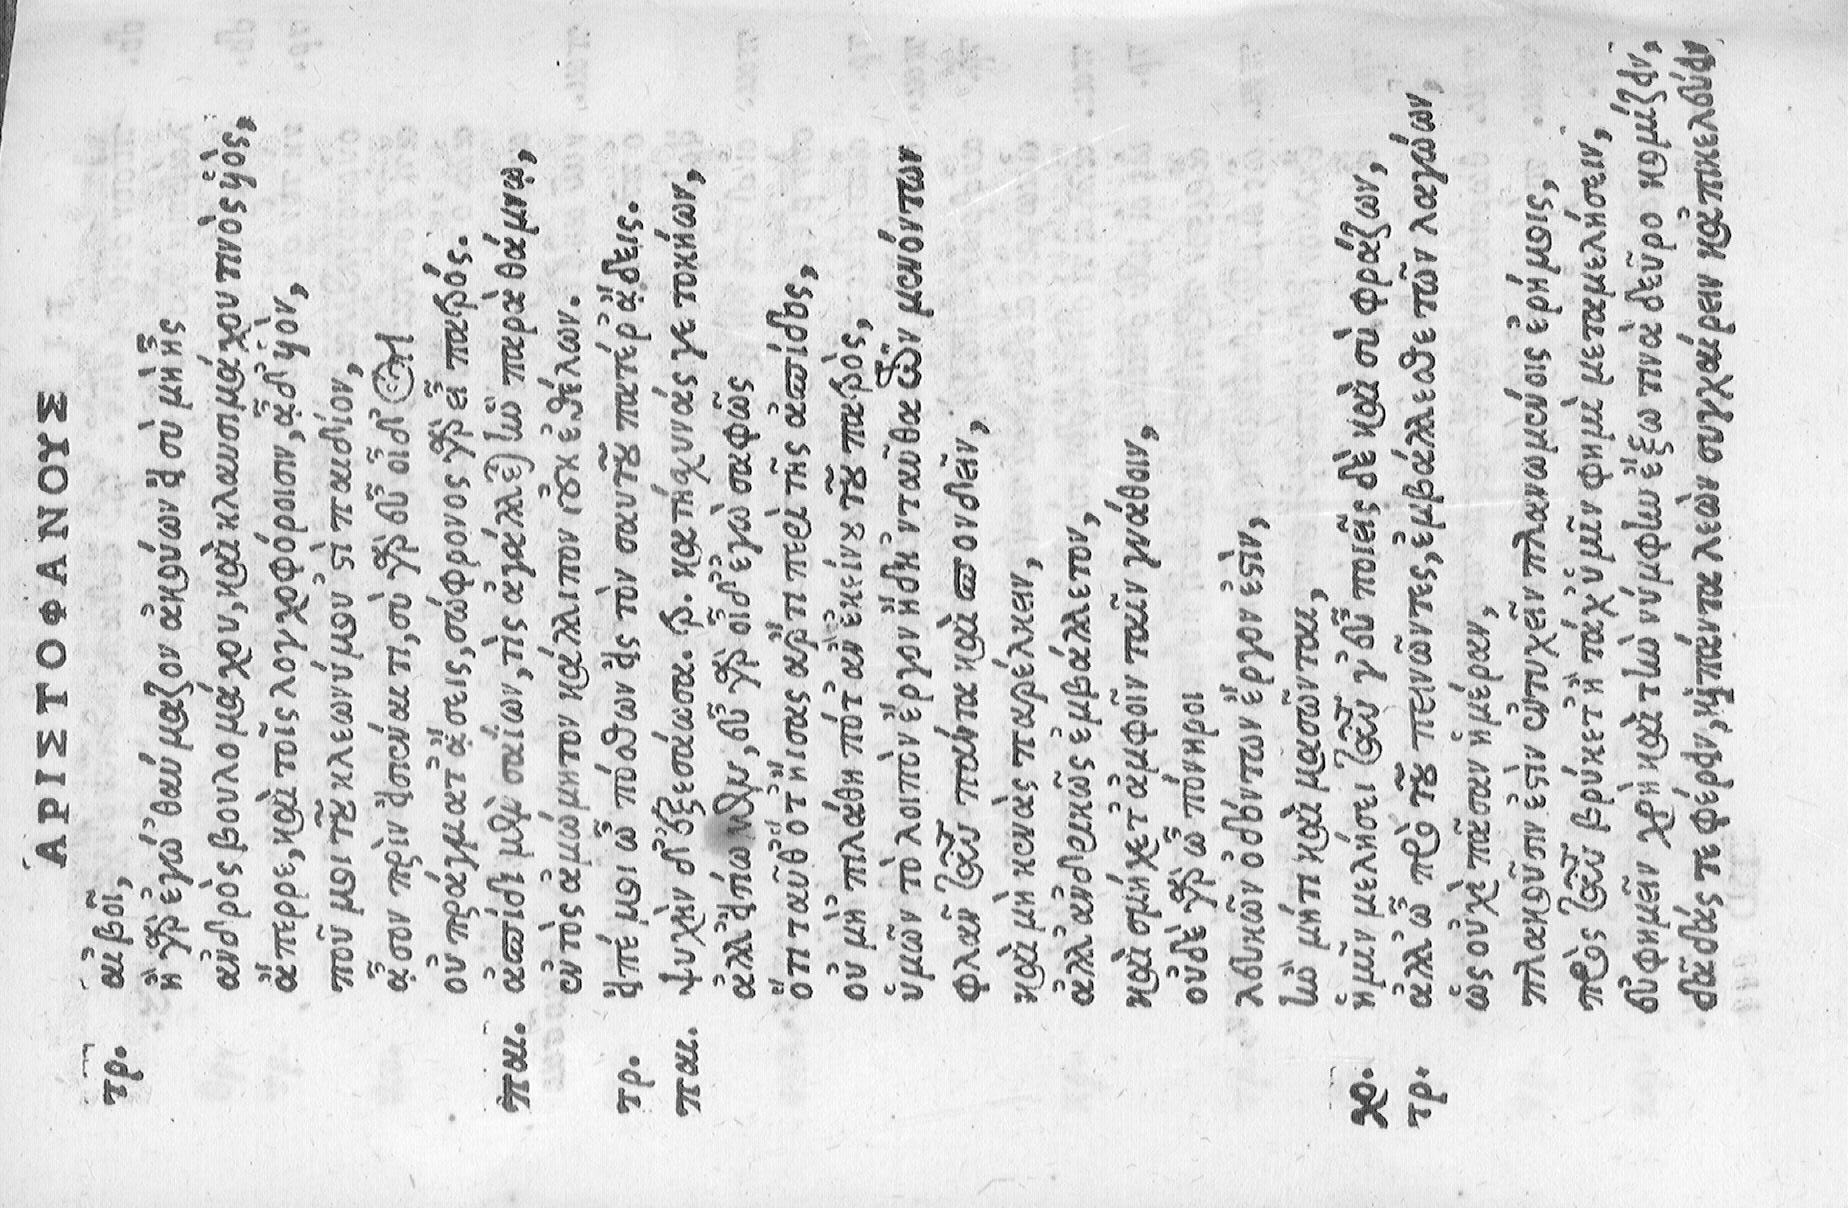 ἈΡΙΣΤΟΦΑΝΟΥΣ
τρ. αἰβοῖ,
ἦ γὰρ ἐγώ θαύμαζον ἀκούων εἰ σὺ μὴ ἦς
ἀνδρὸς βουλομάχου, καὶ κλαυσιμάχου τινὸς ὑὸς,
ἄπερρε, καὶ τοῖς λογχοφόροισιν, ᾆδ' ἰὼν,
ποῦ μοι τοῦ κλεωνύμου 'στὶ παιδίον,
ᾆσον πρὶν εἰσιέναι τι, σὺ γὰρ εὖ οἶδ' ὅτι
οὐ πράγματ' ᾄσεις, σώφρονος γὰρ εἶ πατρός.
παι. ἀσπίδι μὲν σαΐων, τὶς ἀγάλλεται ἣν παρὰ θάμνῳ,
ἐντὸς ἀμώμητον κάλλιπον οὐκ ἐθέλων.
τρ. εἰπέ μοι ὦ πόσθων εἰς τὸν σαυτοῦ πατέρ' ᾄδεις.
παι. ψυχὴν δ' ἐξεσάωσα. τρ. κατήχυνάς γε τοκήων,
ἀλλ' εἰσίωμεν, εὖ γὰρ οἶδ' ἐγὼ σαφῶς
ὅτι ταῦθ' ὅτ' ᾖσας ἄρτι περὶ τῆς ἀσπίδος,
οὐ μὴ 'πιλάθῃ πότ' ἂν ἐκείνου τοῦ πατρὸς,
ὑμῶν τὸ λοιπὸν ἔργον ἤδη 'νταῦθα τῶν μενόντων
φλᾶν ταῦτα πάντα καὶ σπονδεῖν,
καὶ μὴ κενὰς παρέλκειν,
ἀλλ' ἀνδρικῶς ἐμβάλλετον,
καὶ σμήχετ' ἀμφοῖν ταῖν γνάθοιν,
οὐδὲ γὰρ ὦ πόνηροι
λευκῶν ὀδόντων ἔργον ἐστὶν,
ἢν μήτι καὶ μασῶνται,
χο. ἡμῖν μελήσει ταῦτα γ' εὖ ποιεῖς δὲ καὶ σὺ φράζων,
τρ. ἀλλ' ὦ πρὸ τοῦ πεινῶντες, ἐμβάλλεσθε τῶν λαγώων,
ὡς οὐχὶ πᾶσαν ἡμέραν,
πλακοῦσίν ἐστιν ἐντυχεῖν πλανωμένοις ἐρήμοις,
πρὸς ταῦτα βρύκετ' ἢ τάχ' ὑμῖν φημὶ μεταμελήσειν,
εὐφημεῖν χρὴ καὶ τὴν νύμφην ἔξω τινὰ δεῦρο κομίζειν,
δᾷδάς τε φέρειν, καὶ πάντα λεὼν συγχαίρειν κἀπικελεύειν